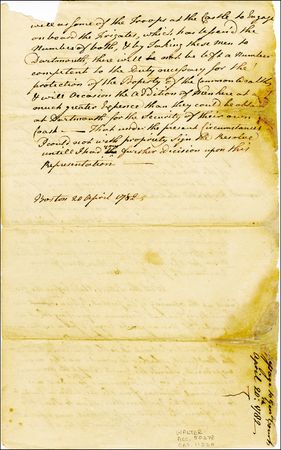 well as some of the Troops at the Castle to Engage
on board the Frigates, which has lessend the
Number of both, & by Taking these men to
Dartmouth, there will not be left a Number
competent to the Duty necessary for the
protection of the Property of the Commonwealth
& will Occasion the Addition of Men here at
much greater Expence than they could be
at Dartmouth for the Security of their own
Coast — That under the present Circumstances
I could not with propriety Sign the Resolve
untill I had the further Decision upon this
Representation —
Boston 20 April 1782
April 20: 1782
WALTER
ACC.
CAT.